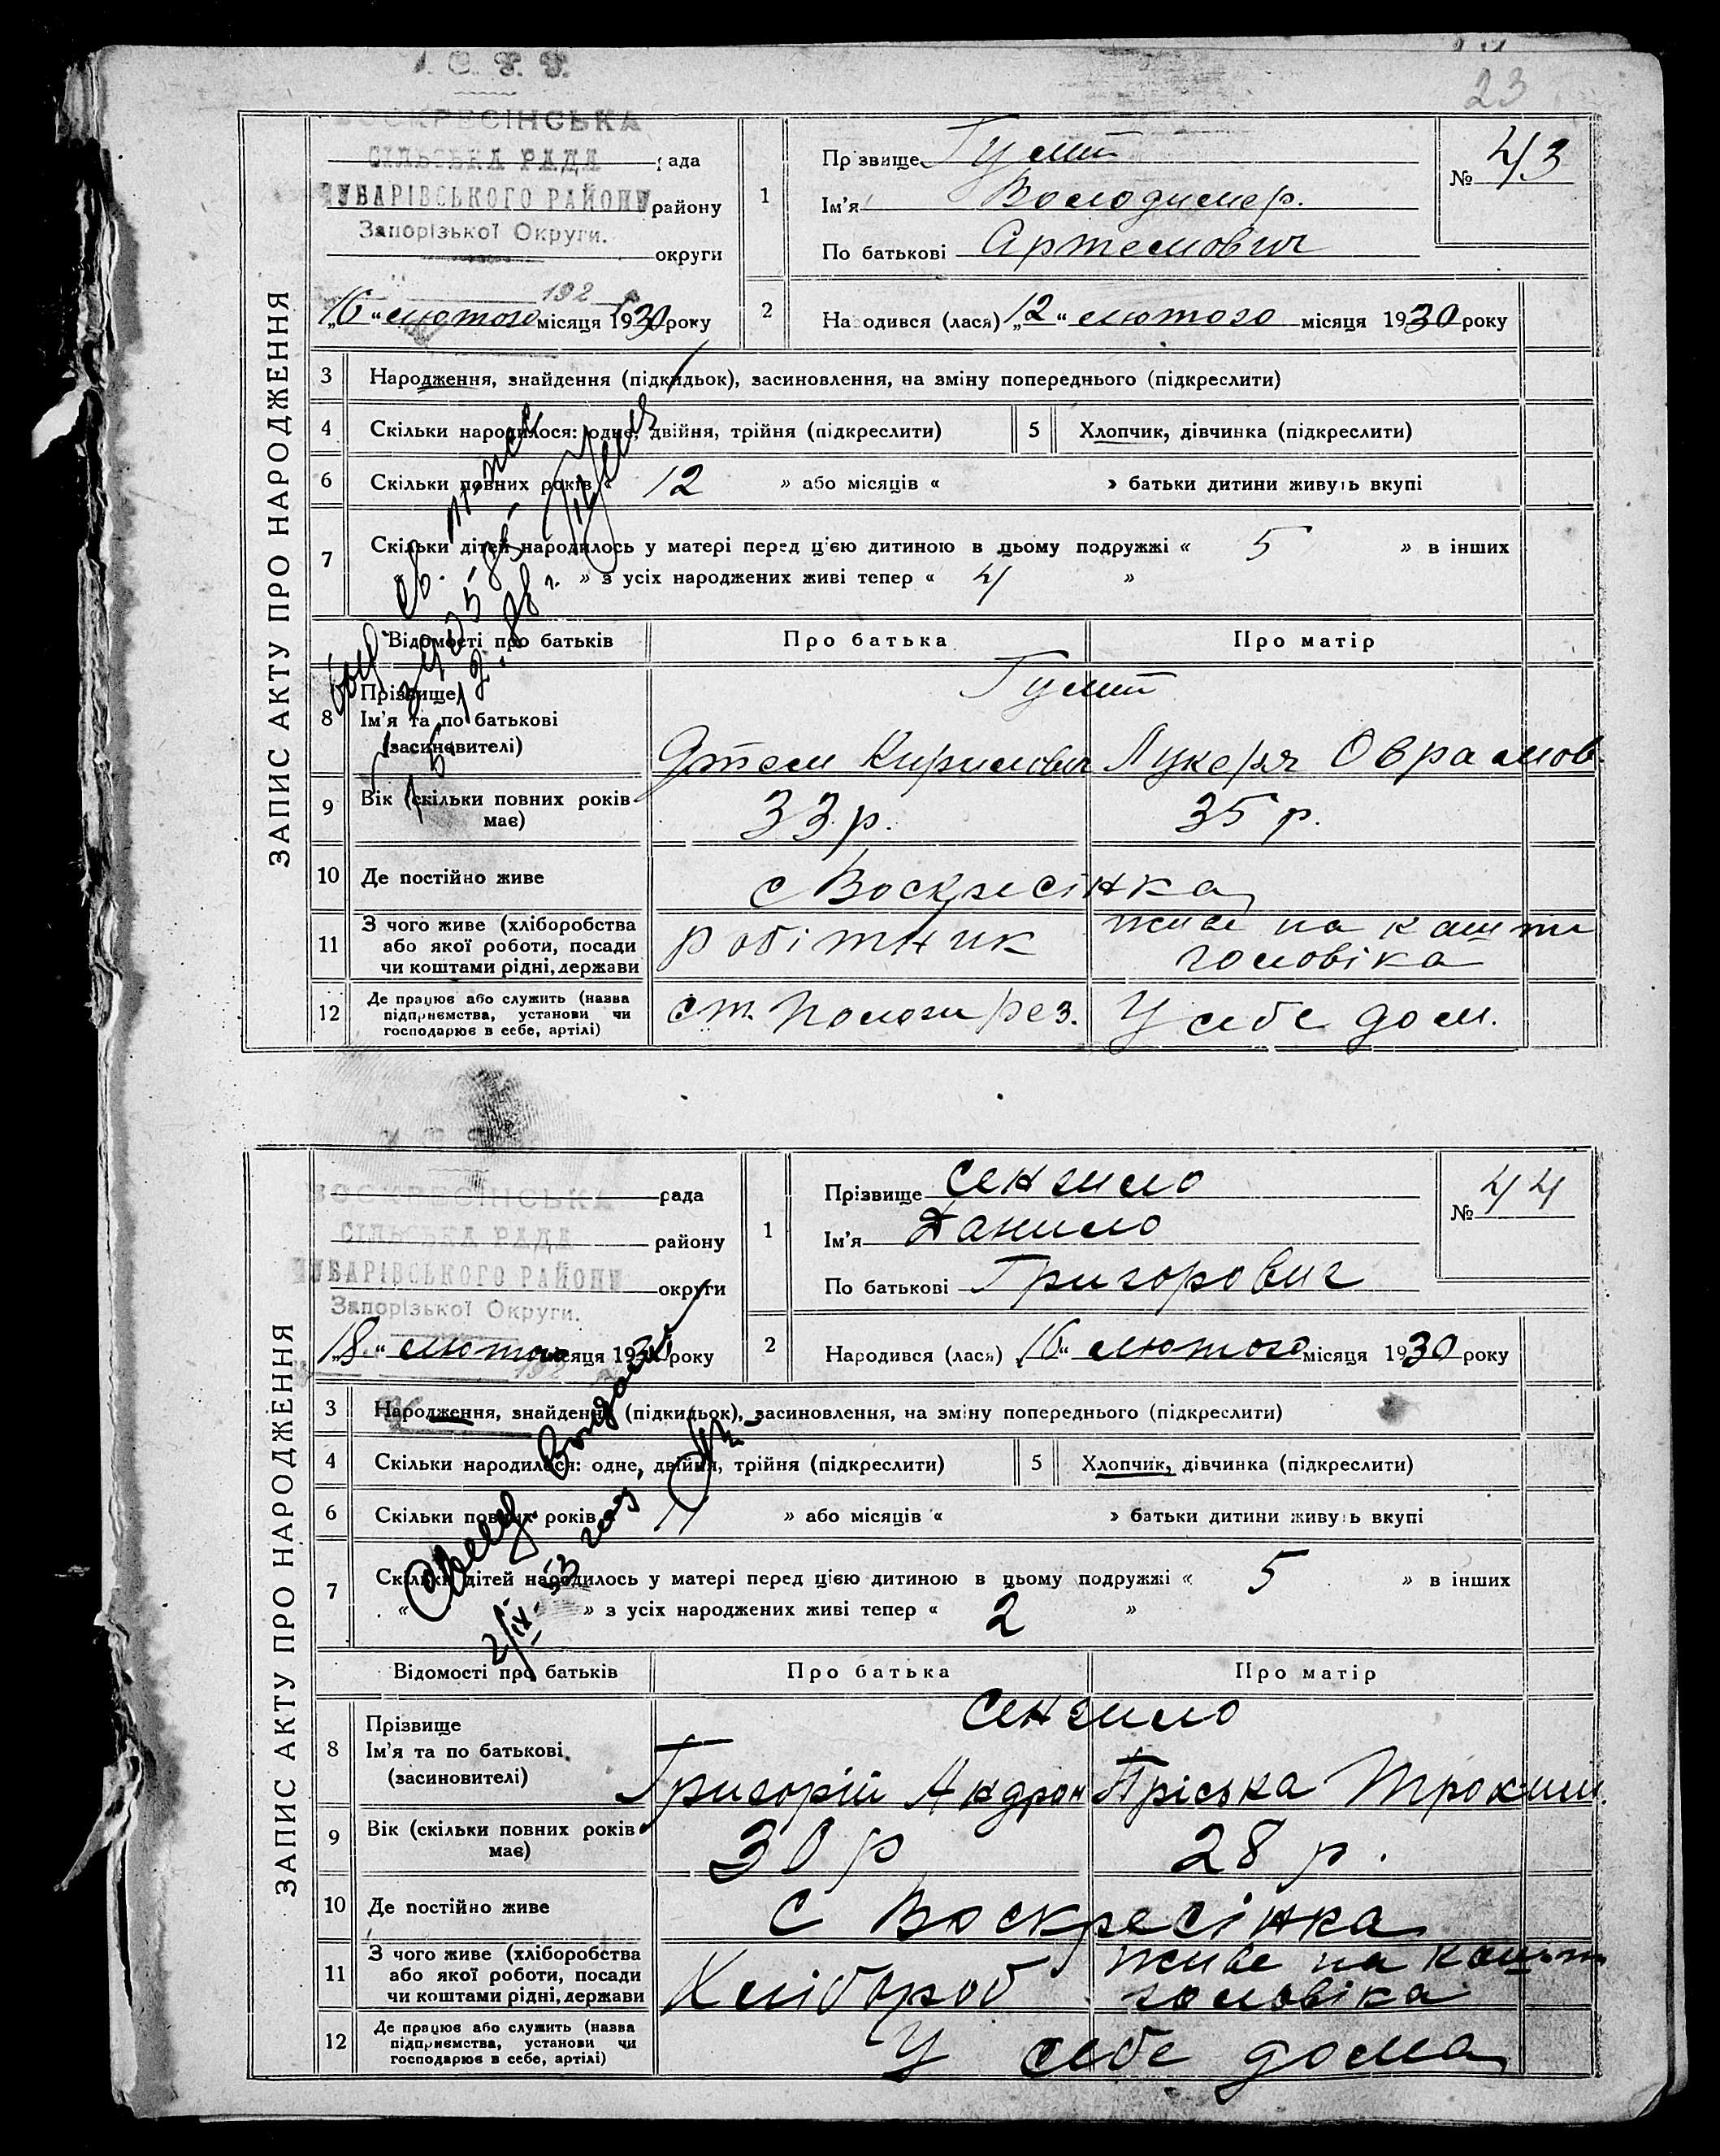 23
ЗАПИС АКТУ ПРО НАРОДЖЕННЯ
ВОСКРЕСІНСЬКА
СІЛЬСЬКА РАДА рада
ЧУБАРІВСЬКОГО РАЙОНУ району
Запорізької Округи.
округи
192
„16“ лютого місяця 1930 року
1
Прізвище Гумин
Ім'я Володимер.
По батькові Артемович
№ 43
2
Народився (лася) „12“ лютого місяця 1930 року
3 Народження, знайдення (підкидьок), засиновлення, на зміну попереднього (підкреслити)
4 Скільки народилося: одне, двійня, трійня (підкреслити) 5 Хлопчик, дівчинка (підкреслити)
6 Скільки повних років « 12 » або місяців « » батьки дитини живуть вкупі
7 Скільки дітей народилось у матері перед цією дитиною в цьому подружжі « 5 » в інших
» з усіх народжених живі тепер « 4 »
Відомості про батьків Про батька Про матір
8 Прізвище Гумин
Ім'я та по батькові
(засиновителі) Артем Кирилович Лукеря Оврамов.
9 Вік (скільки повних років має) 33 р. 35 р.
10 Де постійно живе с Воскресінка
11 З чого живе (хліборобства або якої роботи, посади чи коштами рідні, держави робітник живе на кошти чоловіка
12 Де працює або служить (назва підприємства, установи чи господарює в себе, артілі) ст. Пологи рез. У себе дом.
ЗАПИС АКТУ ПРО НАРОДЖЕННЯ
ВОСКРЕСІНСЬКА рада
СІЛЬСЬКА РАДА району
ЧУБАРІВСЬКОГО РАЙОНУ
округи
Запорізької Округи.
„18“ лютого місяця 1930 року
192
1
Прізвище Сенчило
Ім'я Данило
По батькові Григорович
№ 44
2
Народився (лася) „16“ лютого місяця 1930 року
3 Народження, знайдення (підкидьок), засиновлення, на зміну попереднього (підкреслити)
4 Скільки народилося: одне, двійня, трійня (підкреслити) 5 Хлопчик, дівчинка (підкреслити)
6 Скільки повних років « 11 » або місяців « » батьки дитини живуть вкупі
7 Скільки дітей народилось у матері перед цією дитиною в цьому подружжі « 5 » в інших
« » з усіх народжених живі тепер « 2 »
2/IX 53 года
Відомості про батьків Про батька Про матір
8 Прізвище Сенчило
Ім'я та по батькові
(засиновителі) Григорій Андрон Пріська Трохим.
9 Вік (скільки повних років має) 30 р 28 р.
10 Де постійно живе с Воскресінка
11 З чого живе (хліборобства або якої роботи, посади чи коштами рідні, держави Хлібороб живе на кошт чоловіка
12 Де працює або служить (назва підприємства, установи чи господарює в себе, артілі) У себе дома